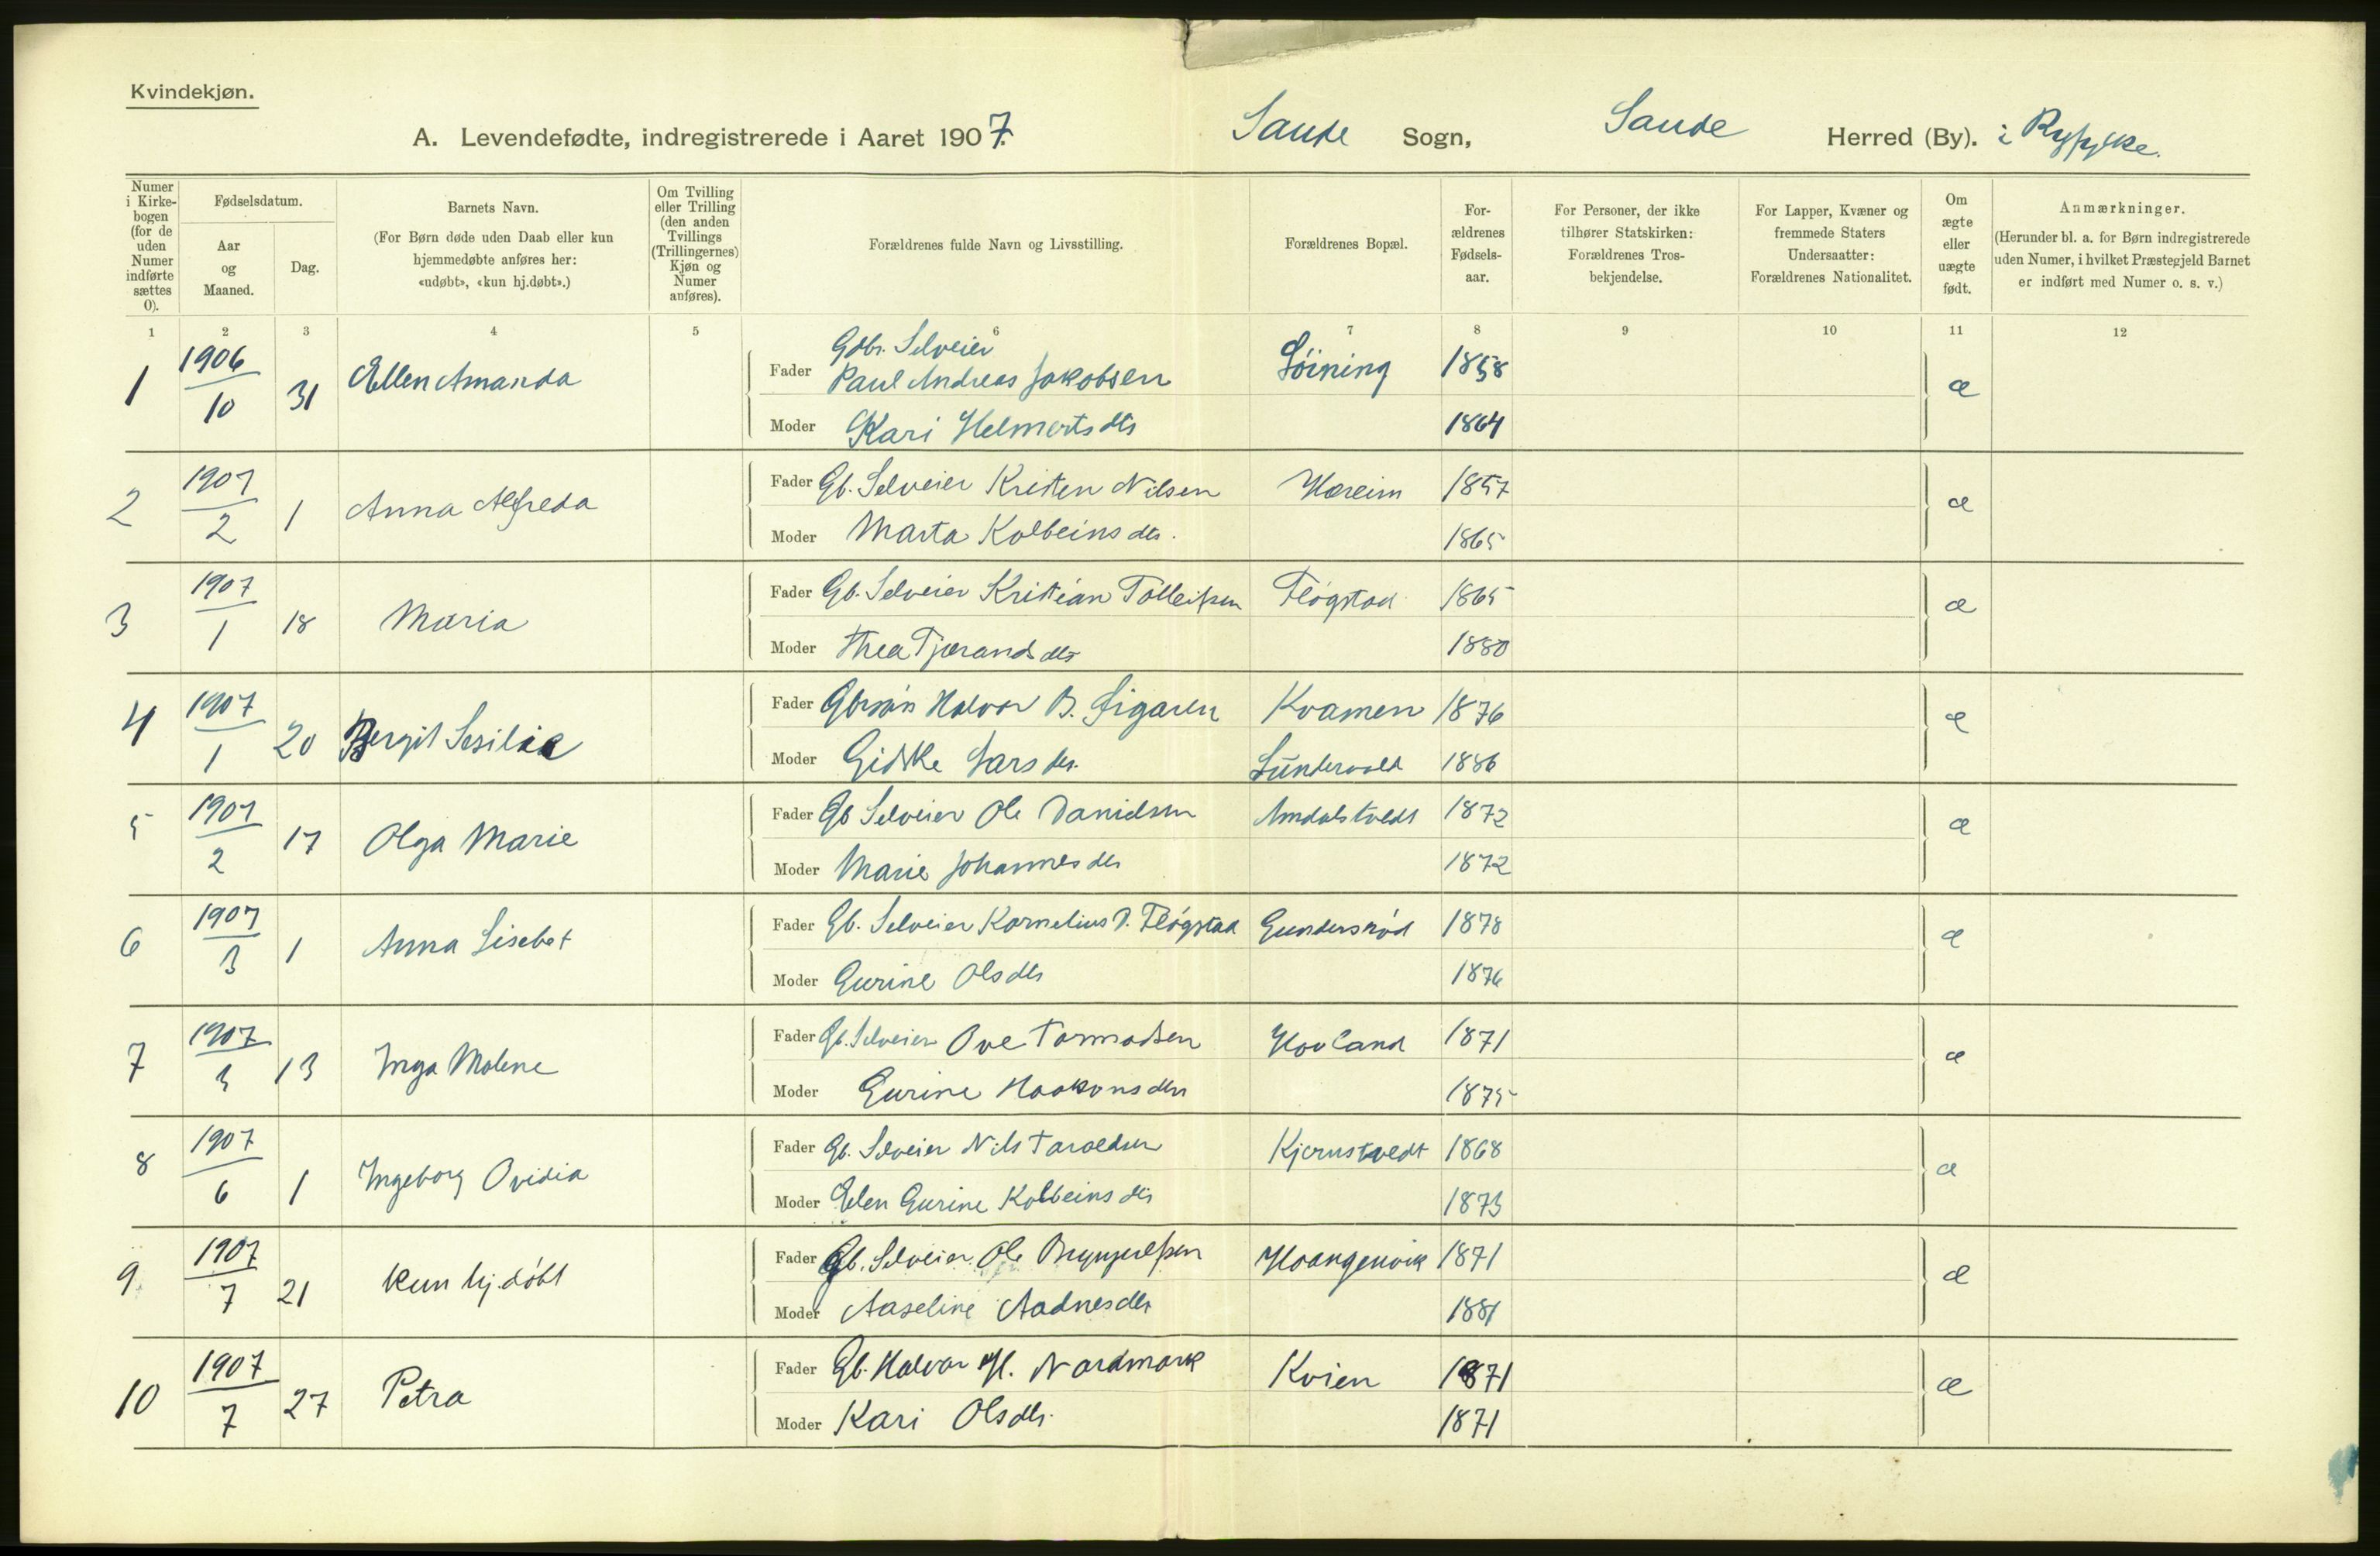 Kvindekjøn.
A. Levendefødte, indregistrerede i Aaret 1907. Saude Sogn, Saude Herred (By). i Ryfylke.
Numer i Kirkebogen (for de uden Numer indførte sættes 0).
Fødselsdatum.
Aar og Maaned.
Dag.
Barnets Navn.
(For Børn døde uden Daab eller kun hjemmedøbte anføres her: «udøbt», «kun hj.døbt».)
Om Tvilling eller Trilling (den anden Tvillings (Trillingernes) Kjøn og Numer anføres).
Forældrenes fulde Navn og Livsstilling.
Forældrenes Bopæl.
Forældrenes Fødselsaar.
For Personer, der ikke tilhører Statskirken: Forældrenes Trosbekjendelse.
For Lapper, Kvæner og fremmede Staters Undersaatter: Forældrenes Nationalitet.
Om ægte eller uægte født.
Anmærkninger.
(Herunder bl. a. for Børn indregistrerede uden Numer, i hvilket Præstegjeld Barnet er indført med Numer o. s. v.)
1 2 3 4 5 6 7 8 9 10 11 12
1 1906/10 31 Ellen Amanda Fader Gdbr. Selveier Paul Andreas Jakobsen 1858 æ
Moder Kari Helmertsdtr 1864
2 1907/2 1 Anna Alfreda Fader Gb. Selveier Kristen Nilsen Hareim 1857 æ
Moder Marta Kolbeinsdtr. 1865
3 1907/1 18 Maria Fader Gb. Selveier Kristian Tolleifsen Fløgstad 1865 æ
Moder Thea Tjærandsdtr 1880
4 1907/1 20 Bergit Sesilie Fader Halvor B. Kvamen 1876 æ
Moder Gidske Larsdtr. 1886
5 1907/2 17 Olga Marie Fader Gb Selveier Ole Danielsen Amdalstvedt 1872 æ
Moder Marie Johannesdtr 1872
6 1907/3 1 Anna Lisebet Fader Gb. Selveier Kornelius D. Fløgstad 1878 æ
Moder Gurine Olsdtr 1876
7 1907/3 13 Inga Malene Fader Gb. Selveier Ove Tormodsen Hovland 1871 æ
Moder Gurine Haakonsdtr 1875
8 1907/6 1 Ingeborg Ovidia Fader Gb. Selveier Nils Taraldsen 1868 æ
Moder Elen Gurine Kolbeinsdtr 1873
9 1907/7 21 Kun hj.døbt Fader Gb. Selveier Ole Brynjulfsen Hoangenvik 1871 æ
Moder Aaseline Aadnesdtr 1881
10 1907/7 27 Petra Fader Gb. Halvor H. Nordmark Kvien 1871 æ
Moder Kari Olsdtr. 1871